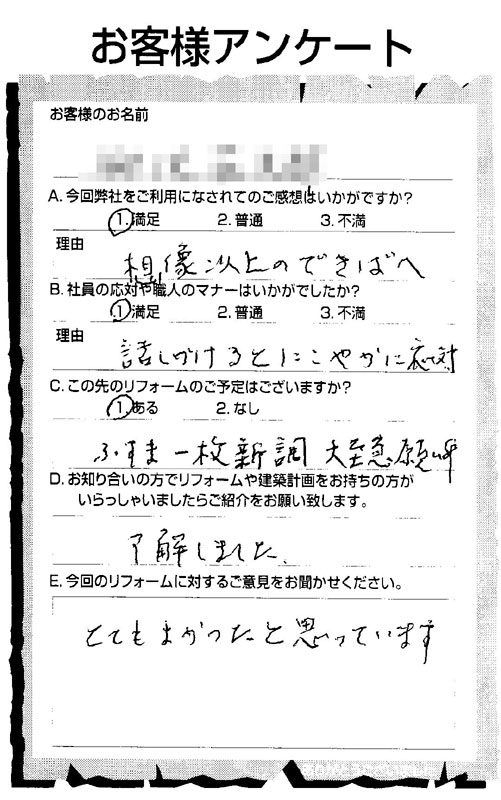 お客様アンケート
お客様のお名前
A. 今回弊社をご利用になされてのご感想はいかがですか?
1. 満足 2. 普通 3. 不満
理由
想像以上のできばへ
B. 社員の応対や職人のマナーはいかがでしたか?
1. 満足 2. 普通 3. 不満
理由
話しかけるとにこやかに応対
C. この先のリフォームのご予定はございますか?
1. ある 2. なし
ふすま一枚新調 大至急願
D. お知り合いの方でリフォームや建築計画をお持ちの方が
いらっしゃいましたらご紹介をお願い致します。
了解しました
E. 今回のリフォームに対するご意見をお聞かせください。
とてもよかったと思っています